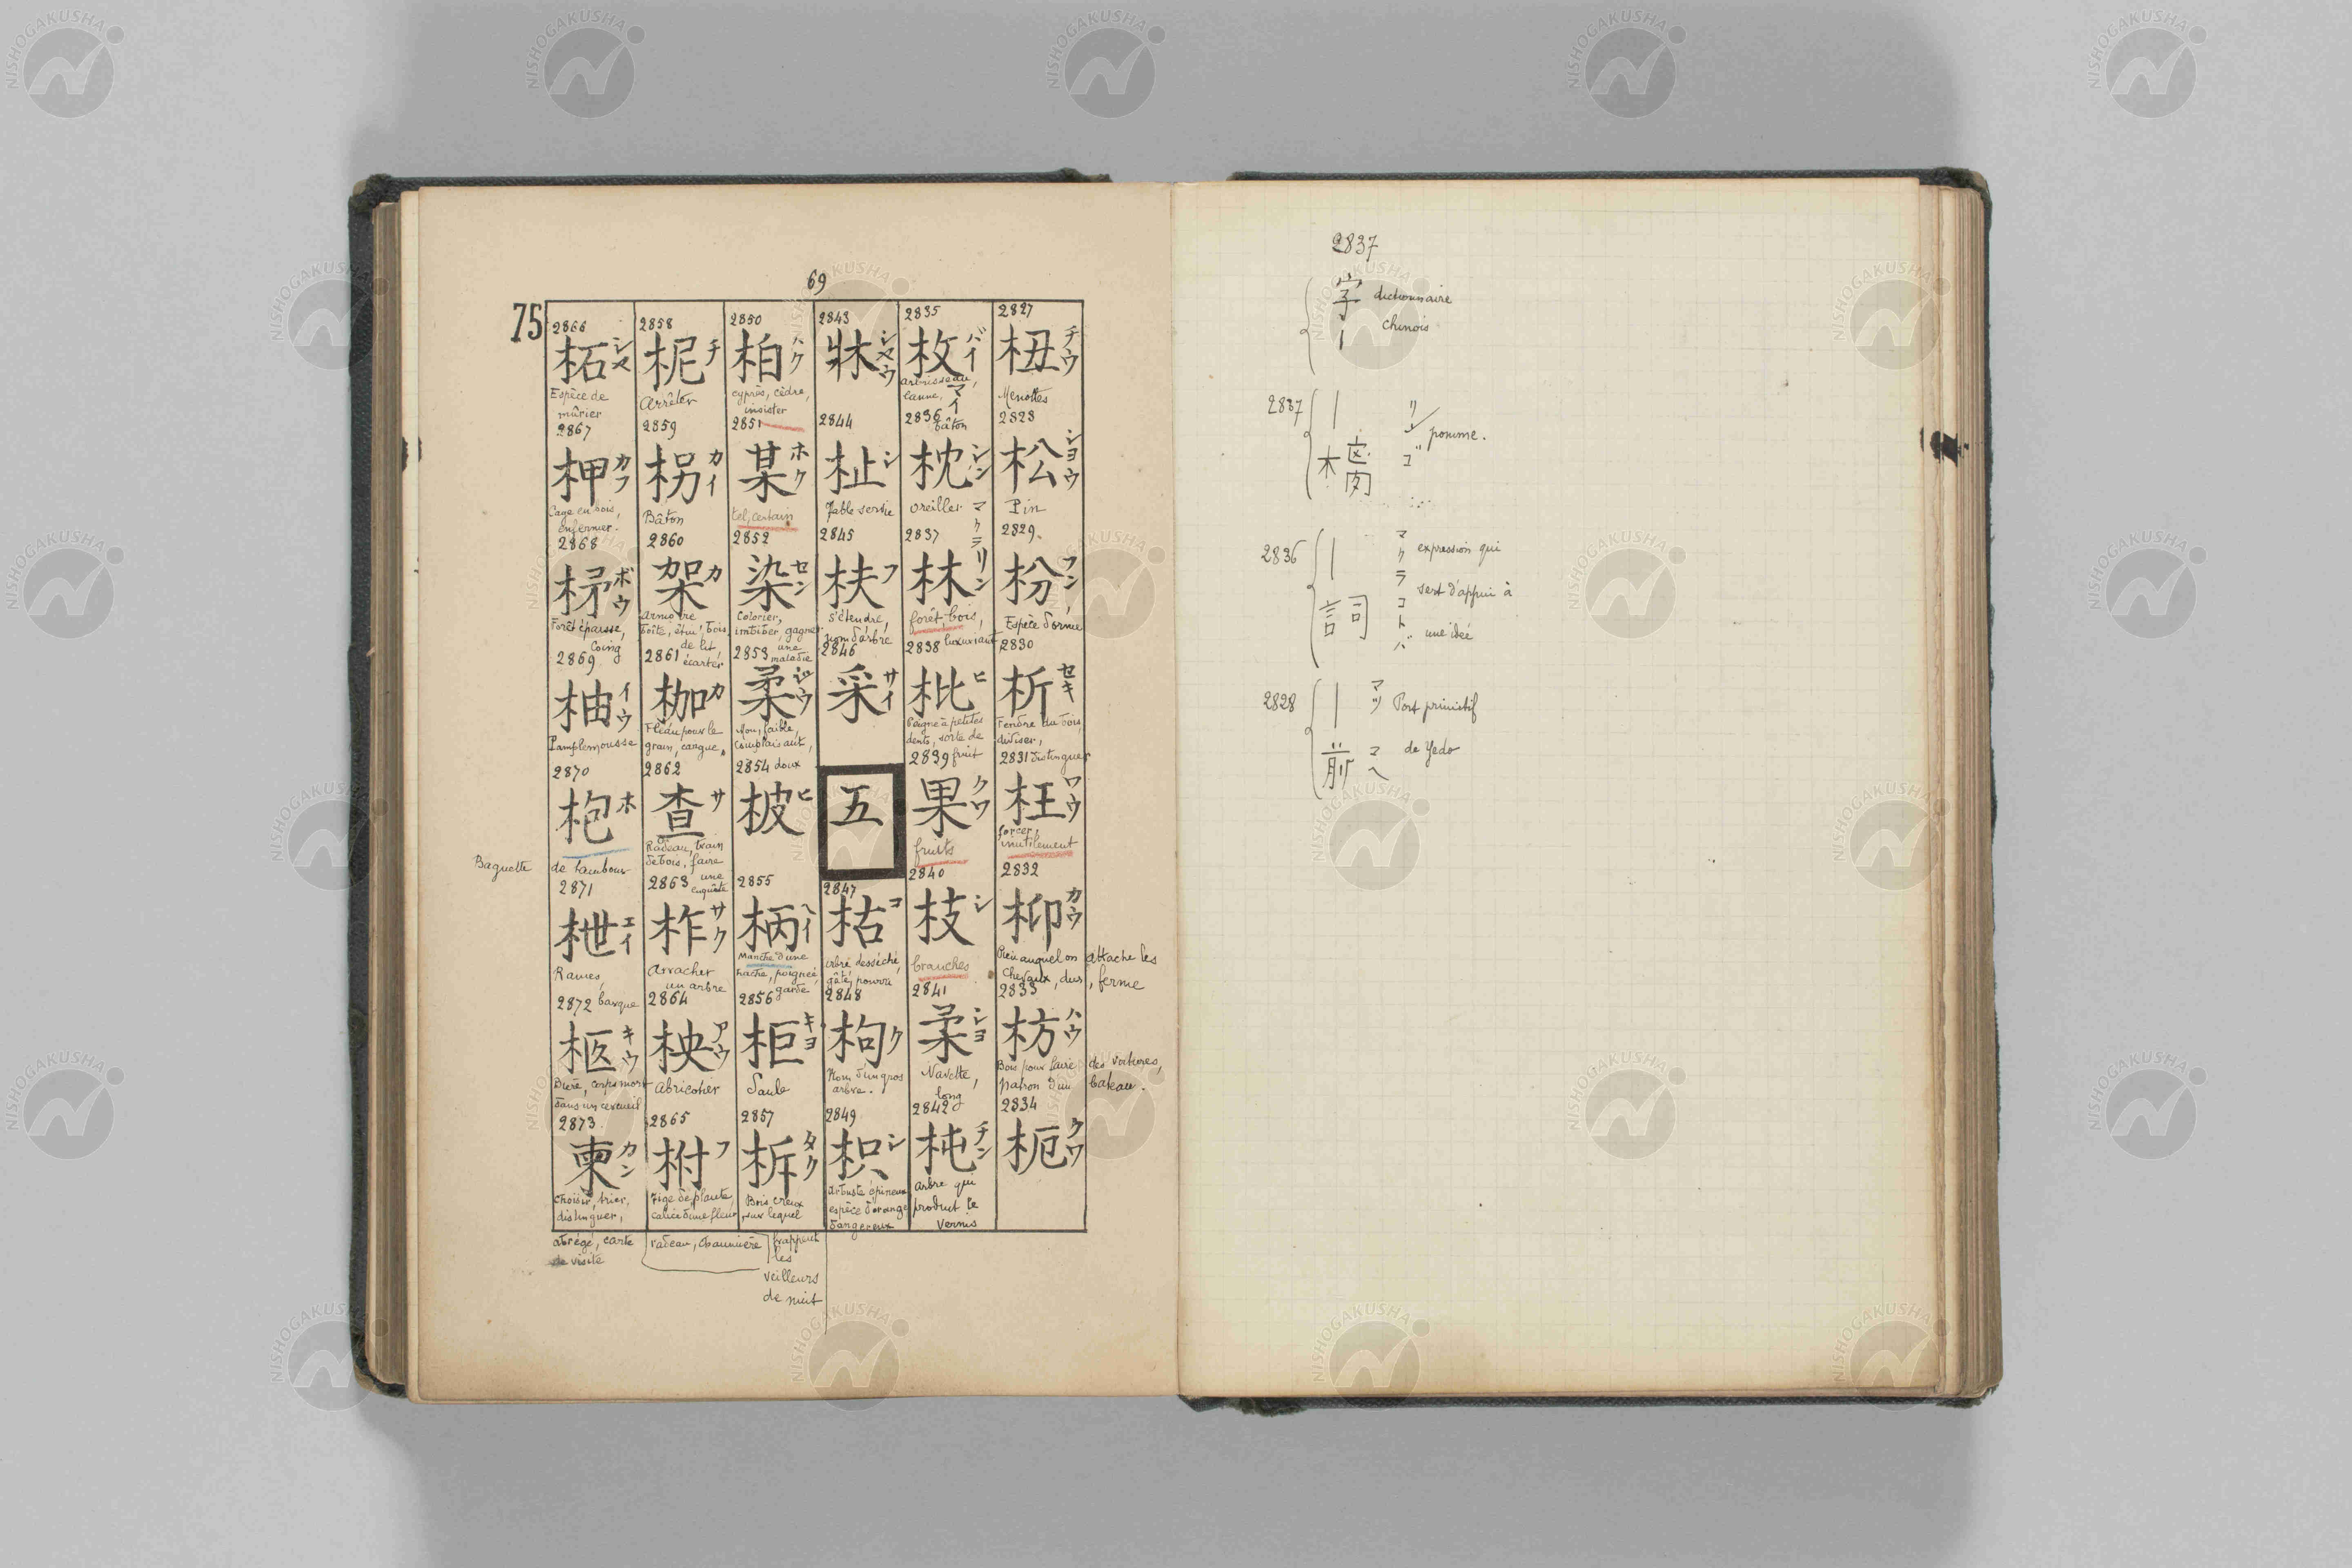 69
75
2827
杻 チウ
Menottes
2828
松 シヨウ
Pin
2829
枌 フン
Espèce d'orme
2830
析 セキ
Fendre du bois,
diviser,
distinguer
2831
枉 ワウ
forcer,
inutilement
2832
枊 カウ
Pieu auquel on attache les
chevaux, dur, ferme
2833
枋 ハウ
Bois pour faire des voitures,
patron d'un bateau.
2834
枙 クワ
2835
枚 バイ
マイ
arbrisseau,
canne,
bâton
2836
枕 シン
oreiller マクラ
2837
林 リン
forêt, bois,
luxuriant
2838
枇 ヒ
Peigne à petites
dents, sorte de
fruit
2839
果 クワ
fruits
2840
枝 シ
branches
2841
柔 シヨ
Navette,
long
2842
杶 チン
arbre qui
produit le
vernis
2843
牀 シヤウ
2844
杫 シ
Table servie
2845
枎 フ
s'étendre,
nom d'arbre
2846
采 サイ
五
2847
枯 コ
arbre desséché,
gâté, pourri
2848
枸 ク
Nom d'un gros
arbre.
2849
枳 シ
Arbuste épineux
espèce d'orange
dangereux
2850
柏 ハク
cyprès, cèdre,
insister
2851
某 ホク
tel, certain
2852
染 セン
Colorier,
imbiber, gagner
une
maladie
2853
柔 ジウ
Mou, faible,
complaisant,
doux
2854
柀 ヒ
2855
柄 ヘイ
Manche d'une
hache, poignée,
garde
2856
柜 キヨ
Saule
2857
柝 タク
Bois creux
sur lequel
frappent
les
veilleurs
de nuit
2858
柅 チ
Arrêter
2859
枴 カイ
Bâton
2860
架 カ
Armoire
boîte, étui, bois
de lit,
écarter
2861
枷 カ
Fléau pour le
grain, cangue,
2862
查 サ
Radeau, train
de bois, faire
une
enquête
2863
柞 サク
Arracher
un arbre
2864
柍 アウ
Abricotier
2865
柎 フ
Tige de plante,
calice d'une fleur
radeau, chaumière
2866
柘 シヤ
Espèce de
mûrier
2867
柙 カフ
Cage en bois,
enfermer.
2868
柕 ボウ
Forêt épaisse,
Coing
2869
柚 イウ
Pamplemousse
2870
枹 ホ
Baguette de tambour
2871
枻 エイ
Rames,
barque
2872
柩 キウ
Bière, corps mort
dans un cercueil
2873
柬 カン
Choisir, trier,
distinguer,
abrégé, carte
de visite
2837
字 dictionnaire
| chinois
2837
| リン pomme.
檎 ゴ
2836
| マクラ expression qui
詞 コトバ sert d'appui à
une idée
2828
| マツ Port primitif
前 マヘ de Yedo
NISHOGAKUSHA